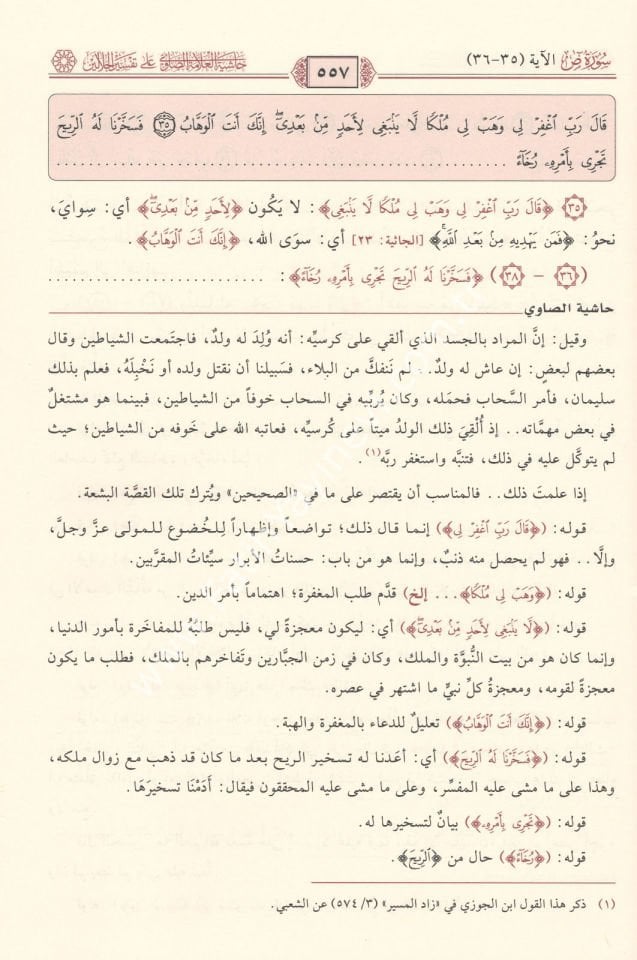 سورة ص الآية (٣٥-٣٦)
٥٥٧
حاشية العلامة الصاوي على تفسير الجلالين
قَالَ رَبِّ ٱغْفِرْ لِى وَهَبْ لِى مُلْكًا لَّا يَنۢبَغِى لِأَحَدٍ مِّنۢ بَعْدِىٓ ۖ إِنَّكَ أَنتَ ٱلْوَهَّابُ ٣٥ فَسَخَّرْنَا لَهُ ٱلرِّيحَ
تَجْرِى بِأَمْرِهِۦ رُخَآءً ........................
٣٥ ﴿قَالَ رَبِّ ٱغْفِرْ لِى وَهَبْ لِى مُلْكًا لَّا يَنۢبَغِى﴾: لا يكون ﴿لِأَحَدٍ مِّنۢ بَعْدِىٓ﴾ أي: سِوايَ،
نحوُ: ﴿فَمَن يَهْدِيهِ مِنۢ بَعْدِ ٱللَّهِ﴾ [الجاثية: ٢٣] أي: سوَى الله، ﴿إِنَّكَ أَنتَ ٱلْوَهَّابُ﴾.
(٣٦ - ٣٨) ﴿فَسَخَّرْنَا لَهُ ٱلرِّيحَ تَجْرِى بِأَمْرِهِۦ رُخَآءً﴾: ........................
حاشية الصاوي
وقيل: إنَّ المراد بالجسد الذي ألقي على كرسيِّه: أنه وُلِدَ له ولدٌ، فاجتمعت الشياطين وقال
بعضهم لبعضٍ: إن عاش له ولدٌ.. لم نَنفكَّ من البلاء، فسَبيلنا أن نقتل ولده أو نَخْبِلَهُ، فعلم بذلك
سليمان، فأمر السَّحاب فحمله، وكان يُربِّيه في السحاب خوفاً من الشياطين، فبينما هو مشتغلٌ
في بعض مهمَّاته.. إذ أُلْقِيَ ذلك الولدُ ميتاً على كُرسيِّه، فعاتبه الله على خَوفه من الشياطين؛ حيث
لم يتوكَّل عليه في ذلك، فتنبَّه واستغفر ربَّه(١).
إذا علمتَ ذلك.. فالمناسب أن يقتصر على ما في «الصحيحين» ويُترك تلك القصَّة البشعة.
قوله: (﴿قَالَ رَبِّ ٱغْفِرْ لِى﴾) إنما قال ذلك؛ تواضعاً وإظهاراً لِلخُضوع للمولى عزَّ وجلَّ،
وإلَّا.. فهو لم يحصل منه ذنبٌ، وإنما هو من باب: حسناتُ الأبرار سيِّئاتُ المقرَّبين.
قوله: (﴿وَهَبْ لِى مُلْكًا﴾... إلخ) قدَّم طلب المغفرة؛ اهتماماً بأمر الدين.
قوله: (﴿لَّا يَنۢبَغِى لِأَحَدٍ مِّنۢ بَعْدِىٓ﴾) أي: ليكون معجزةً لي، فليس طلبُهُ للمفاخَرة بأمور الدنيا،
وإنما كان هو من بيت النُّبوَّة والملك، وكان في زمن الجبَّارين وتَفاخرهم بالملك، فطلب ما يكون
معجزة لقومه، ومعجزةُ كلِّ نبيٍّ ما اشتهر في عصره.
قوله: (﴿إِنَّكَ أَنتَ ٱلْوَهَّابُ﴾) تعليلٌ للدعاء بالمغفرة والهبة.
قوله: (﴿فَسَخَّرْنَا لَهُ ٱلرِّيحَ﴾) أي: أعَدنا له تسخير الريح بعد ما كان قد ذهب مع زوال ملكه،
وهذا على ما مشى عليه المفسِّر، وعلى ما مشى عليه المحققون فيقال: أدَمْنَا تسخيرَها.
قوله: (﴿تَجْرِى بِأَمْرِهِۦ﴾) بيانٌ لتسخيرها له.
قوله: (﴿رُخَآءً﴾) حال من ﴿ٱلرِّيحَ﴾.
(١) ذكر هذا القول ابن الجوزي في «زاد المسير» (٣/ ٥٧٤) عن الشعبي.